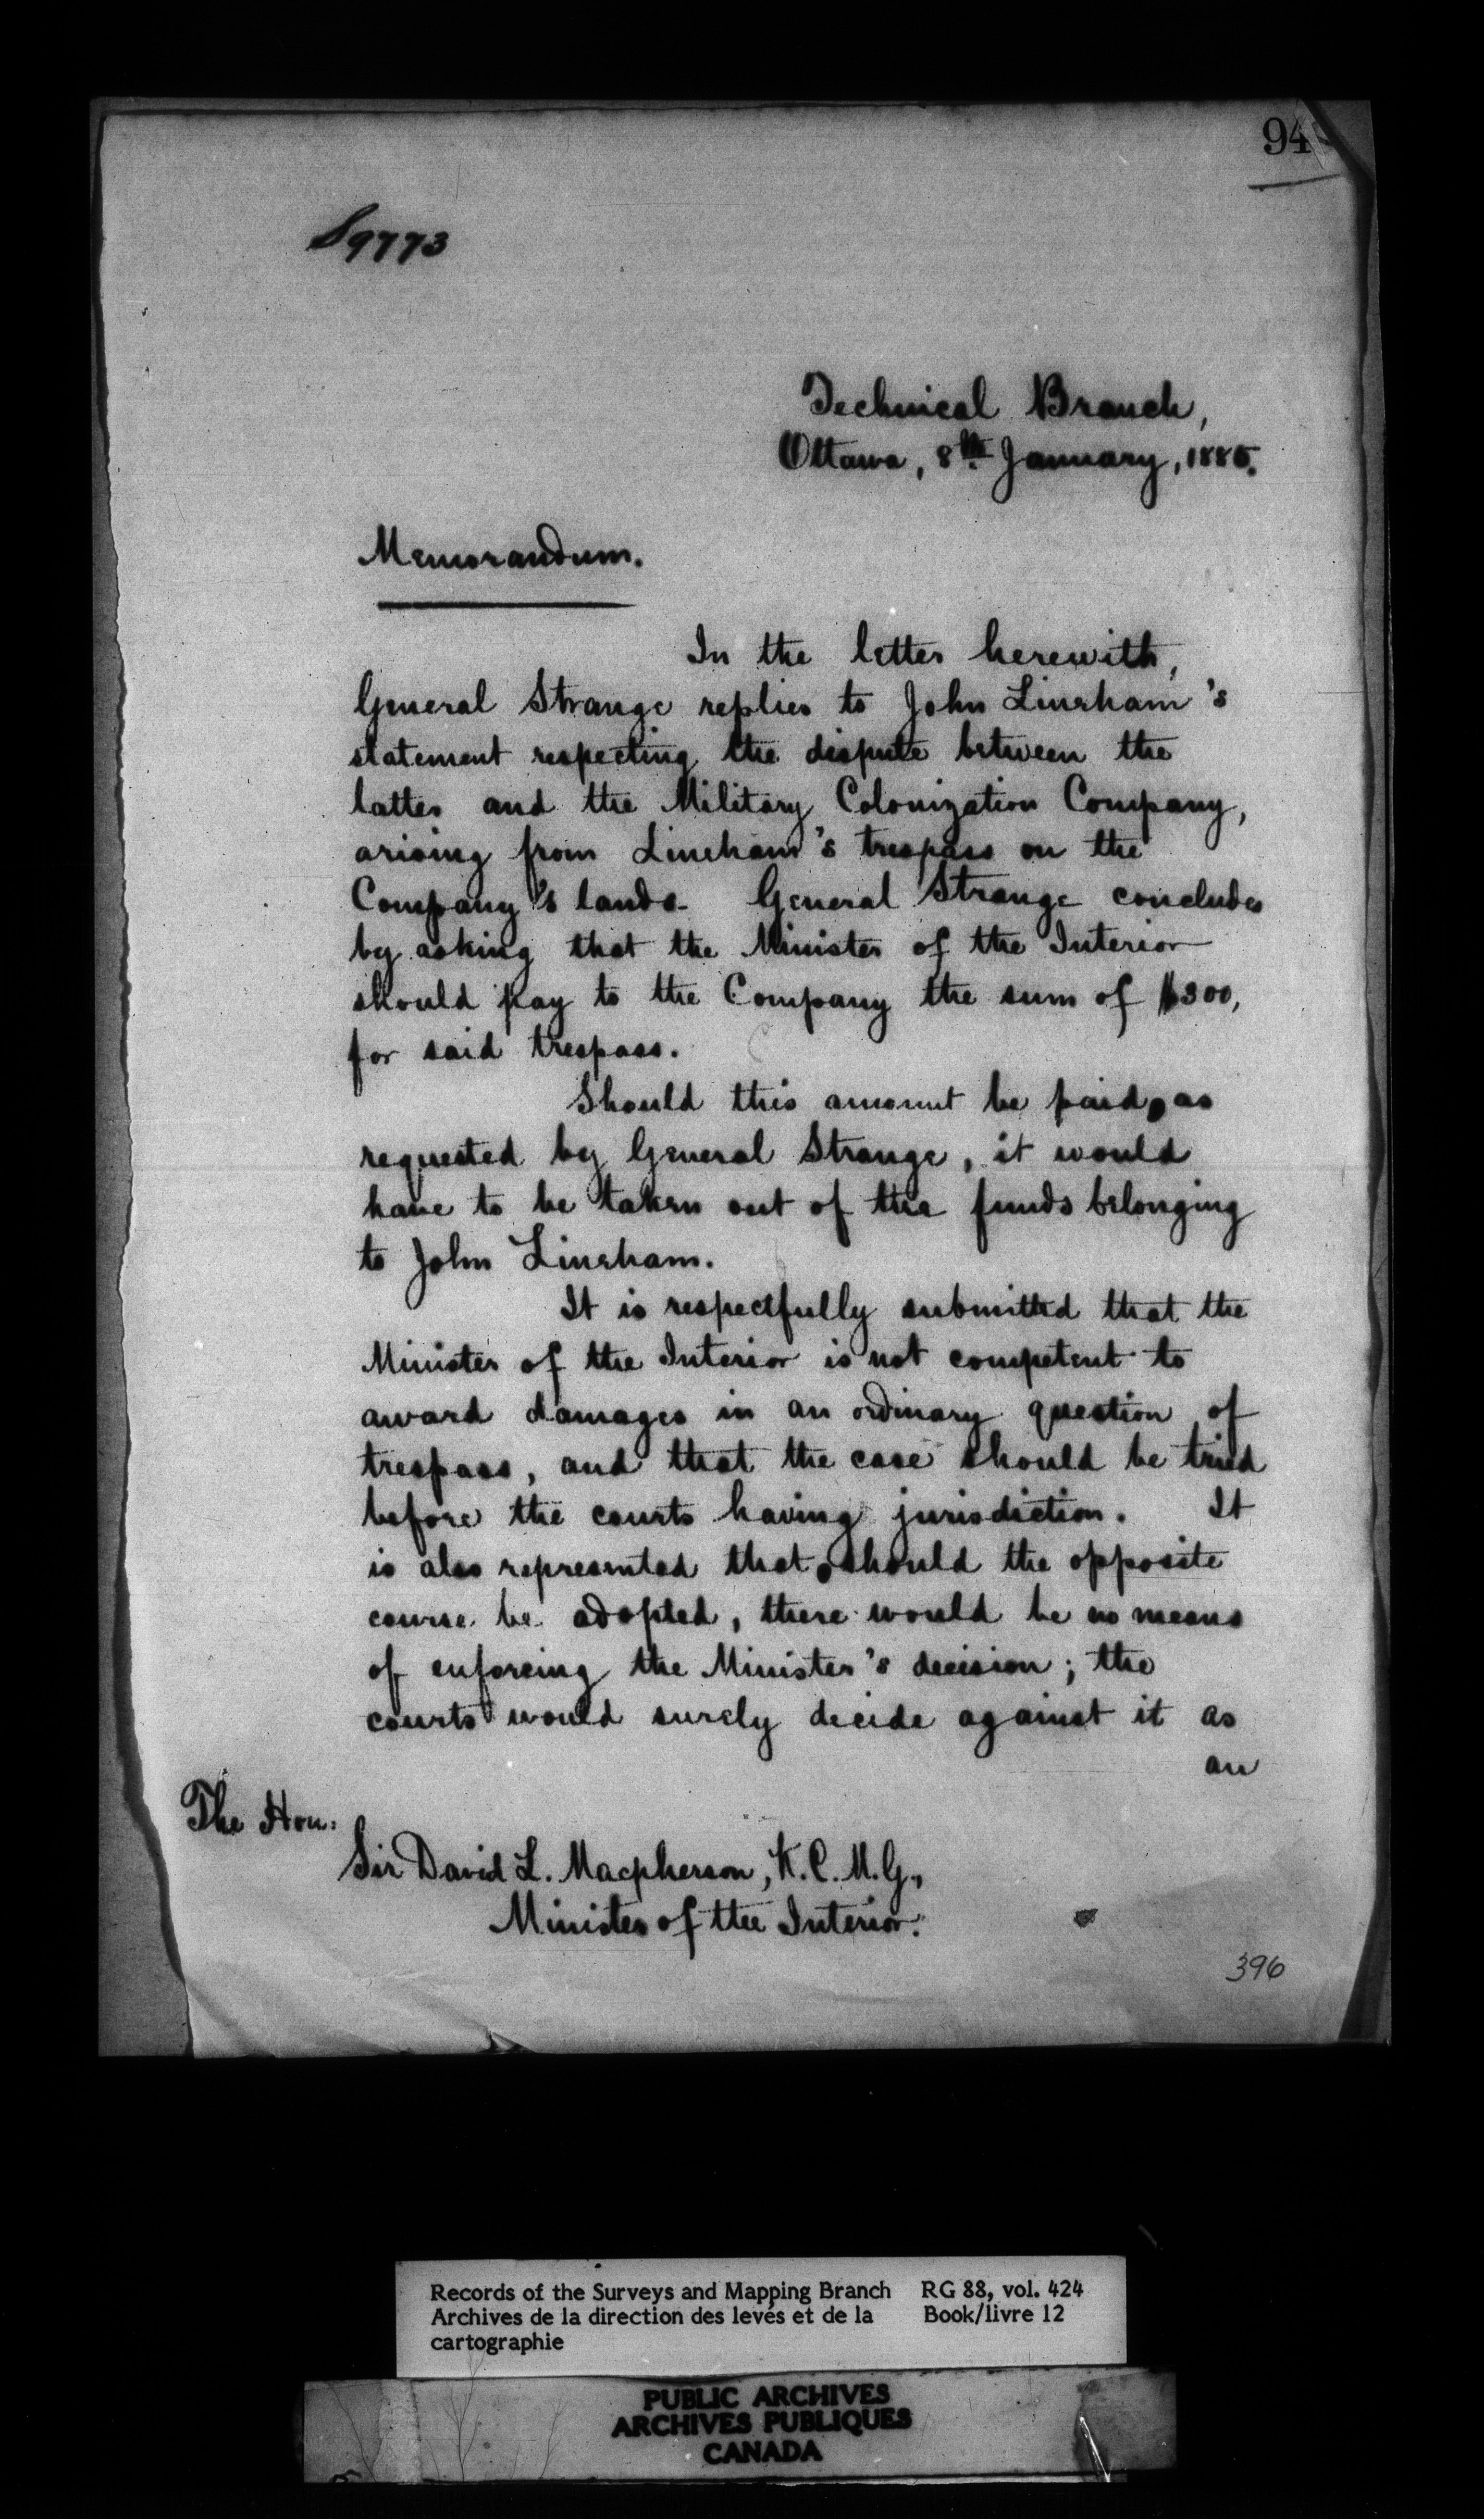 94
S9773
Technical Branch,
Ottawa, 8th January, 1885.
Memorandum.
In the letter herewith,
General Strange replies to John Lineham's
statement respecting the dispute between the
latter and the Military Colonization Company,
arising from Lineham's trespass on the
Company's lands. General Strange concludes
by asking that the Minister of the Interior
should pay to the Company the sum of $300,
for said trespass.
Should this amount be paid, as
requested by General Strange, it would
have to be taken out of the funds belonging
to John Lineham.
It is respectfully submitted that the
Minister of the Interior is not competent to
award damages in an ordinary question of
trespass, and that the case should be tried
before the courts having jurisdiction. It
is also represented that, should the opposite
course be adopted, there would be no means
of enforcing the Minister's decision; the
courts would surely decide against it as
an
The Hon.
Sir David L. Macpherson, K.C.M.G.,
Minister of the Interior.
396
Records of the Surveys and Mapping Branch RG 88, vol. 424
Archives de la direction des levés et de la Book/livre 12
cartographie
PUBLIC ARCHIVES
ARCHIVES PUBLIQUES
CANADA